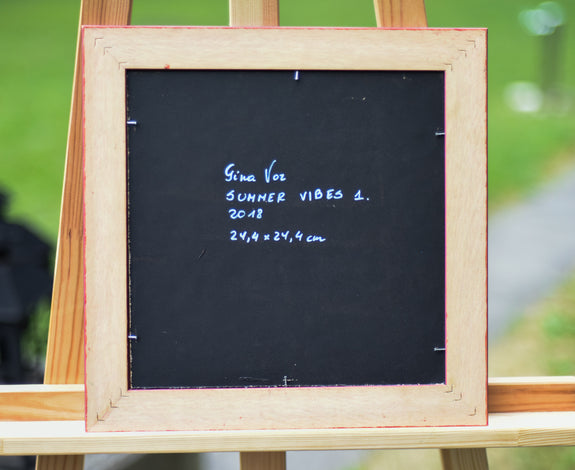 Gina Vor
SUMMER VIBES 1.
2018
24,4 x 24,4 cm